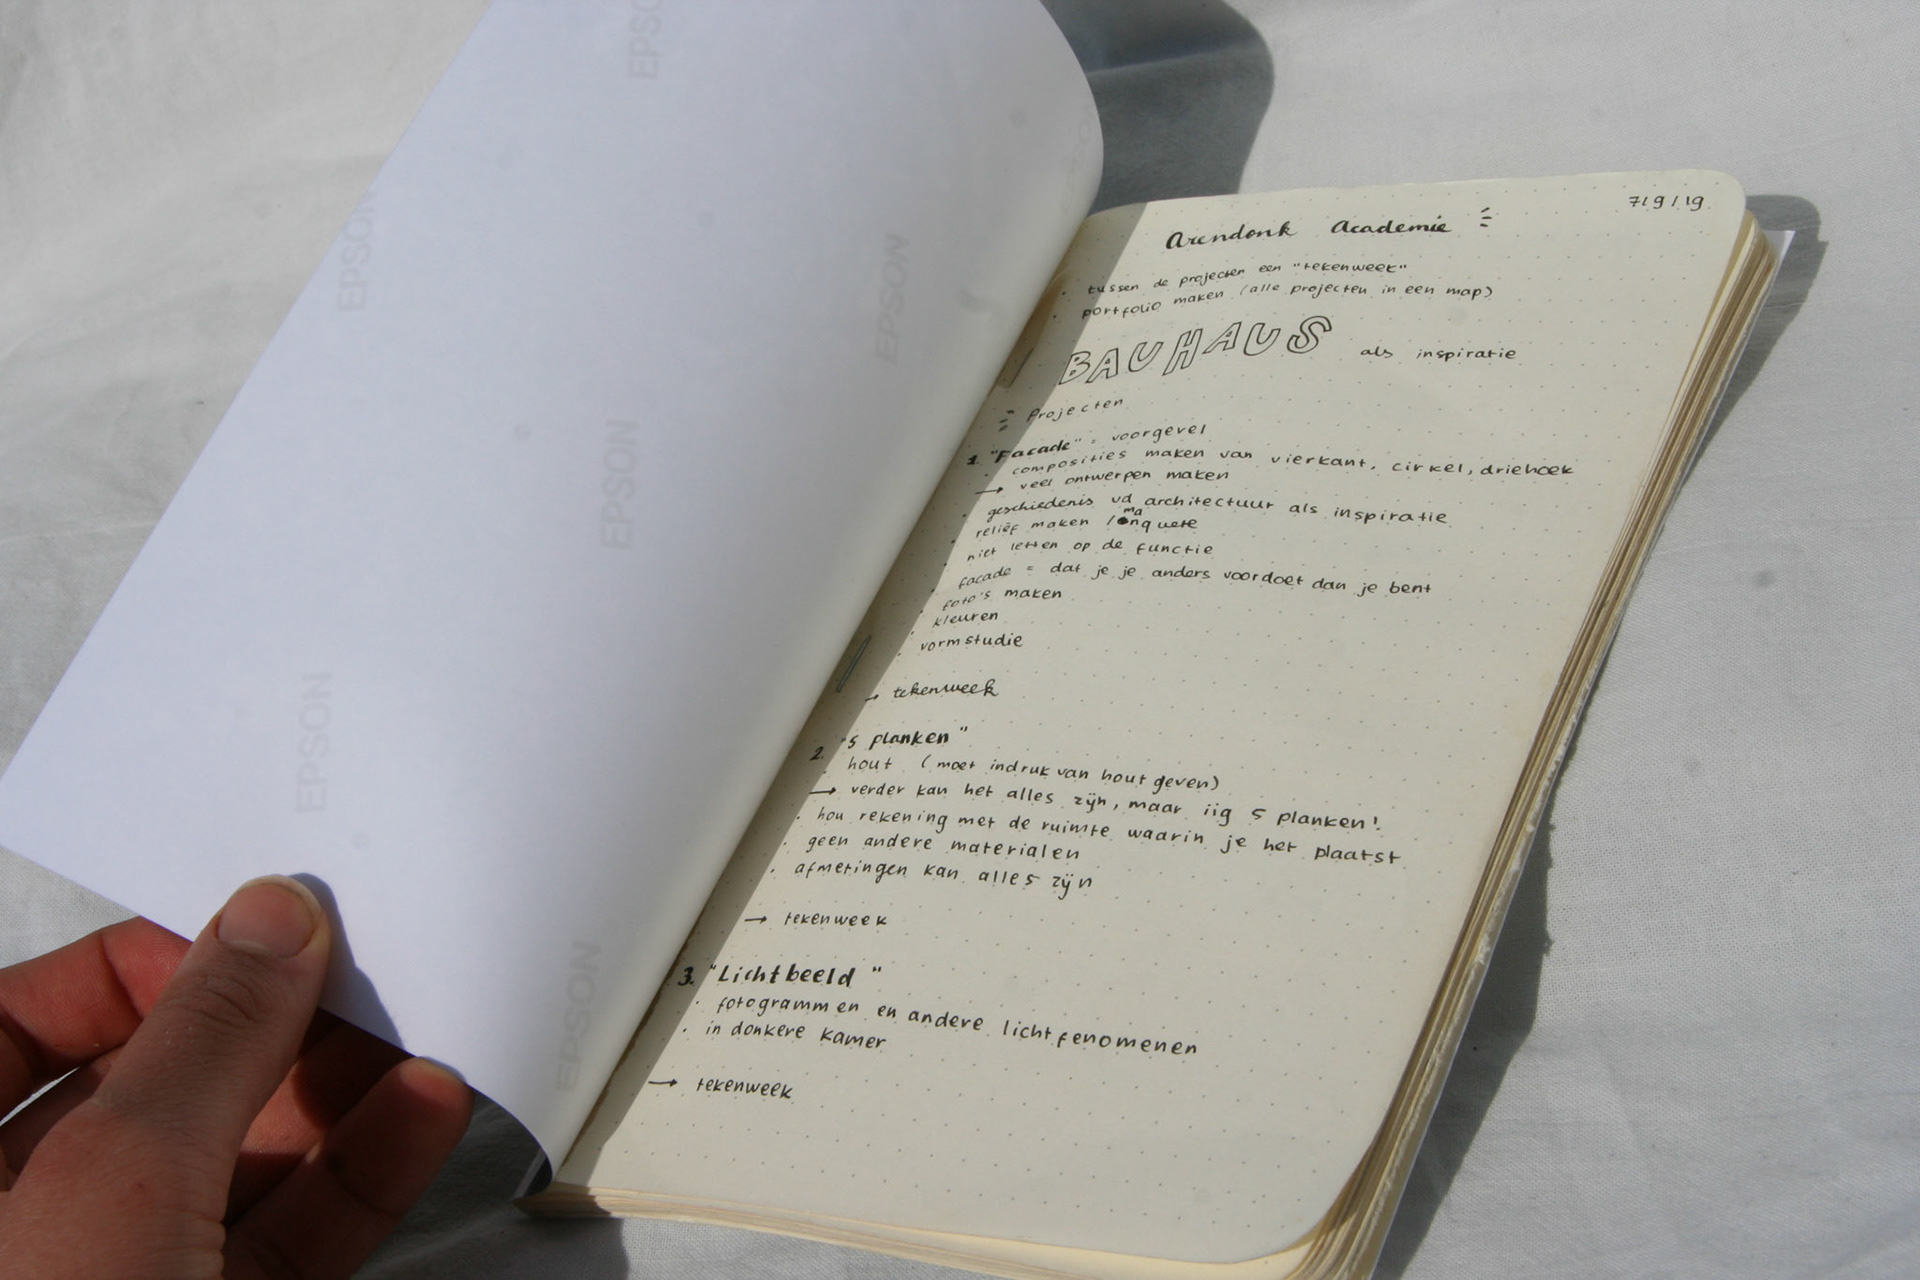 EPSON
EPSON
EPSON
EPSON
EPSON
EPSON
7/9/19
Arendonk Academie
· tussen de projecten een "tekenweek"
· portfolio maken (alle projecten in een map)
BAUHAUS als inspiratie
projecten
1. "Facade" = voorgevel
· composities maken van vierkant, cirkel, driehoek
→ veel ontwerpen maken
· geschiedenis vd architectuur als inspiratie
· reliëf maken / maquete
· niet letten op de functie
· facade = dat je je anders voordoet dan je bent
· foto's maken
· kleuren
· vormstudie
→ tekenweek
2. "5 planken"
· hout (moet indruk van hout geven)
→ verder kan het alles zijn, maar iig 5 planken!
· hou rekening met de ruimte waarin je het plaatst
· geen andere materialen
· afmetingen kan alles zijn
→ tekenweek
3. "Lichtbeeld"
· fotogrammen en andere lichtfenomenen
· in donkere kamer
→ tekenweek